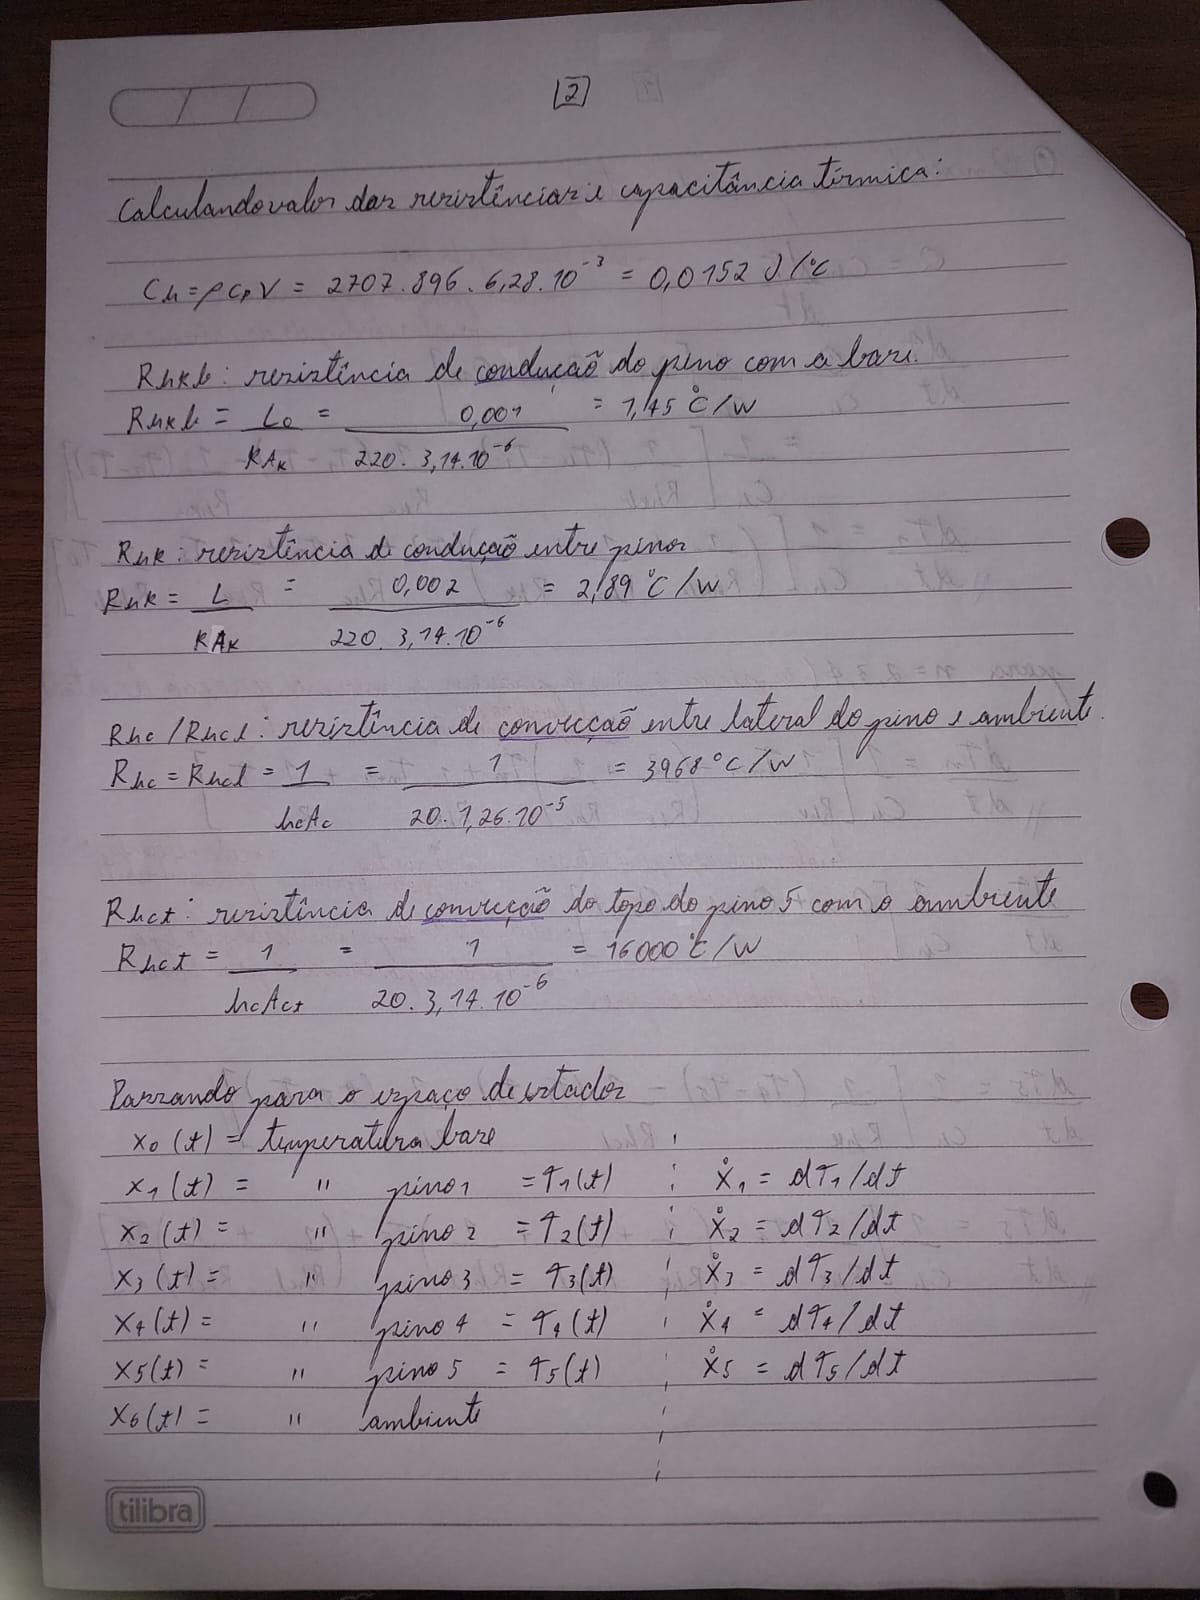 [2]
Calculando valor das resistências e capacitância térmica:
Cn = ρCpV = 2707.896.6,28.10⁻³ = 0,0152 J/°C
Rnkb: resistência de condução do pino com a base.
Rnkb = L₀/KAk = 0,001/220.3,14.10⁻⁶ = 1,45°C/W
Rnk: resistência de condução entre pinos
Rnk = L/KAk = 0,002/220.3,14.10⁻⁶ = 2,89°C/W
Rhc/Rhcl: resistência de convecção entre lateral do pino e ambiente.
Rhc = Rhcl = 1/hcAc = 1/20.1,26.10⁻⁵ = 3968°C/W
Rhct: resistência de convecção do topo do pino 5 com o ambiente
Rhct = 1/hcAct = 1/20.3,14.10⁻⁶ = 16000°C/W
Passando para o espaço de estados
x₀(t) = temperatura base ;
x₁(t) = " pino 1 = T₁(t) ; ẋ₁ = dT₁/dt
x₂(t) = " pino 2 = T₂(t) ; ẋ₂ = dT₂/dt
x₃(t) = " pino 3 = T₃(t) ; ẋ₃ = dT₃/dt
x₄(t) = " pino 4 = T₄(t) ; ẋ₄ = dT₄/dt
x₅(t) = " pino 5 = T₅(t) ; ẋ₅ = dT₅/dt
x₆(t) = " ambiente ;
tilibra